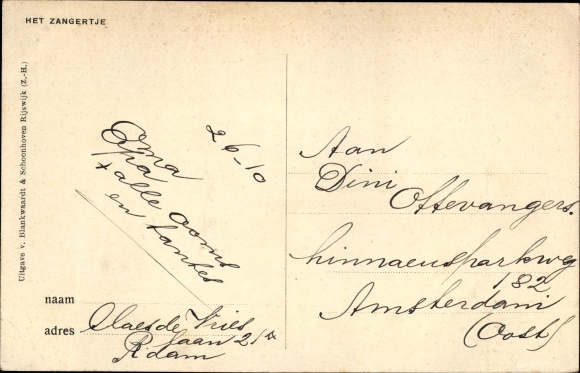 HET ZANGERTJE
Uitgave v. Blankwaardt & Schoonhoven Rijswijk (Z.-H.)
26-10
Oma
Opa
+ alle ooms
en tantes
naam
adres Claes de Vries
laan 21a
R'dam
Aan
Dini
Ottevangers.
Linnaeusparkweg
182
Amsterdam
(Oost)